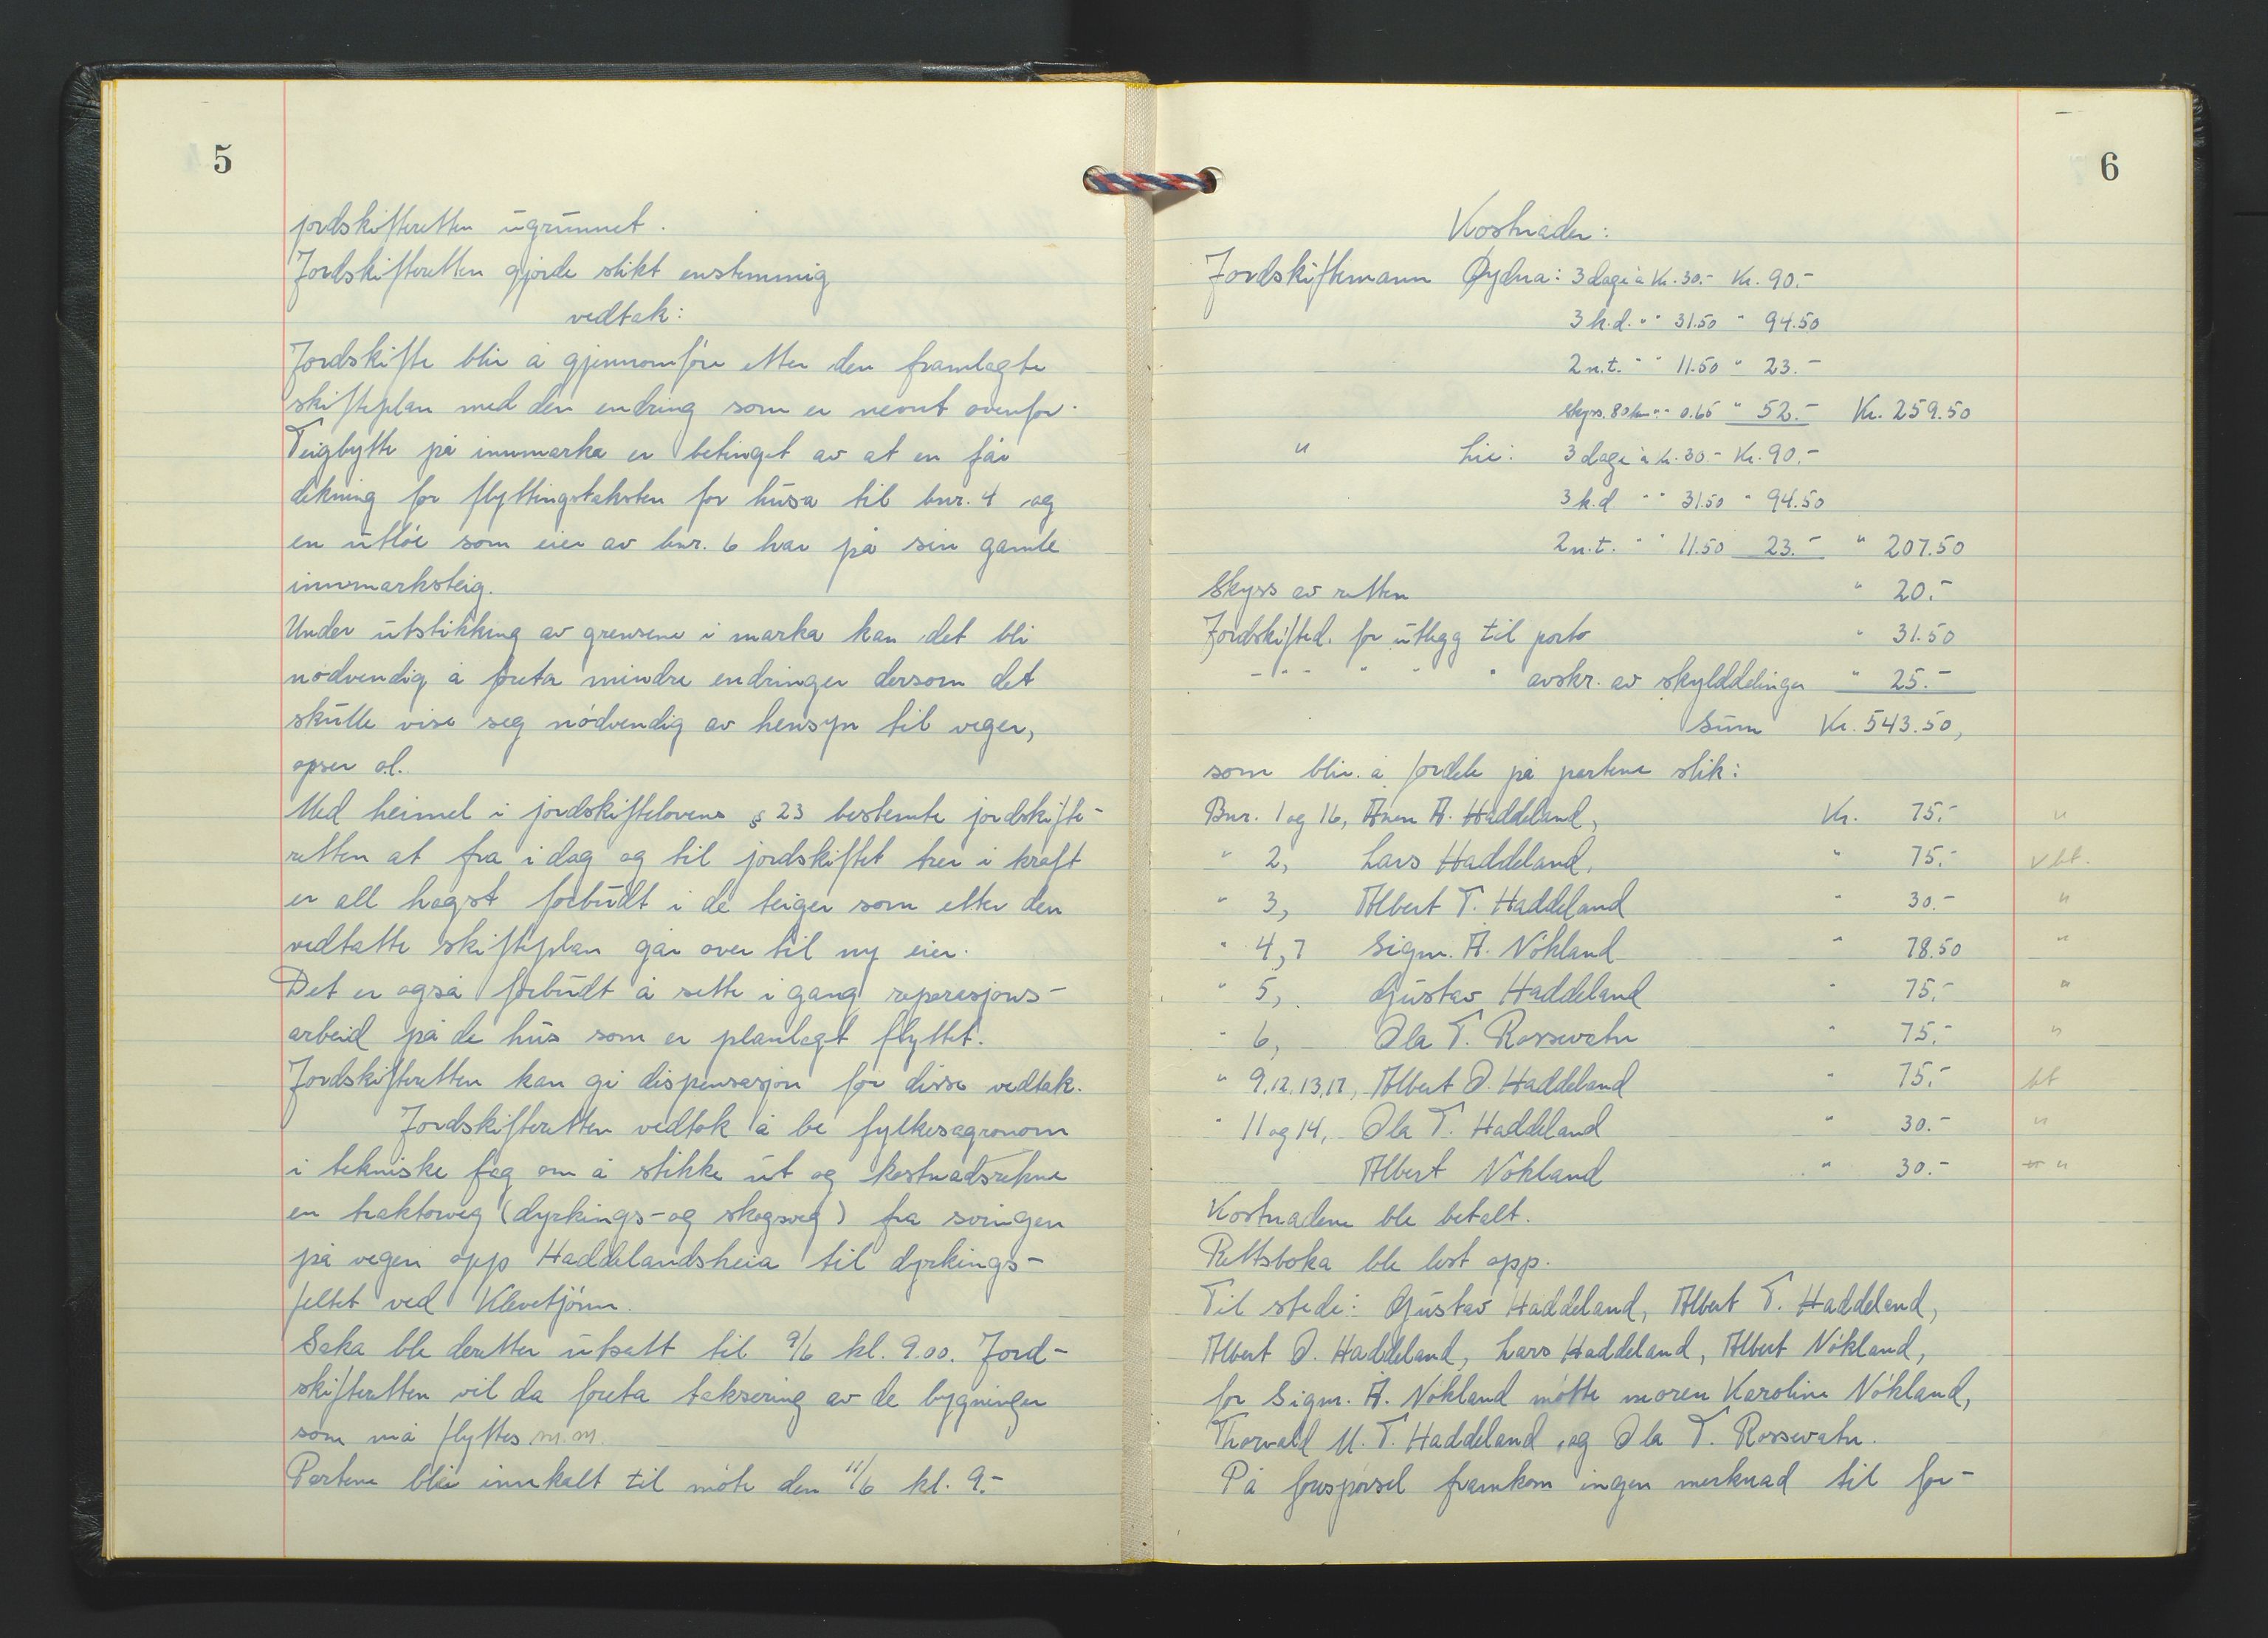 5
jordskifteretten ugrunnet.
Jordskifteretten gjorde slikt enstemmig
vedtak:
Jordskifte blir å gjennomføre etter den framlagte
skifteplan med den endring som er nevnt ovenfor.
Teigbytte på innmarka er betinget av at en får
dekning for flyttingstaksten for husa til bnr. 4 og
en utløe som eier av bnr. 6 har på sin gamle
innmarksteig.
Under utstikking av grensene i marka kan det bli
nødvendig å foreta mindre endringer dersom det
skulle vise seg nødvendig av hensyn til veger,
opser o.l.
Med heimel i jordskiftelovens § 23 bestemte jordskifte-
retten at fra i dag og til jordskiftet trer i kraft
er all hogst forbudt i de teiger som etter den
vedtatte skifteplan går over til ny eier.
Det er også forbudt å sette i gang reparasjons-
arbeid på de hus som er planlagt flyttet.
Jordskifteretten kan gi dispensasjon for disse vedtak.
Jordskifteretten vedtok å be fylkesagronom
i tekniske fag om å stikke ut og kostnadsrekne
en traktorveg (dyrkings- og skogsveg) fra svingen
på vegen opp Haddelandsheia til dyrkings-
feltet ved Klevetjønn.
Saka ble deretter utsatt til 9/6 kl. 9.00. Jord-
skifteretten vil da foreta taksering av de bygninger
som må flyttes m.m.
Partene blir innkalt til møte den 11/6 kl. 9.-
6
Kostnader:
Jordskiftemann Øydna: 3 dage à Kr. 30.- Kr. 90.-
3 k.d. " " 31.50 " 94.50
2 n.t. " " 11.50 " 23.-
Skyss. 80 km " " 0.65 " 52.- Kr. 259.50
" Lie: 3 dage à kr. 30.- Kr. 90.-
3 k.d " " 31.50 " 94.50
2 n.t. " " 11.50 23.- " 207.50
Skyss av retten " 20.-
Jordskifted. for utlegg til porto " 31.50
- " - " " " avskr. av skylddelinger " 25.-
Sum Kr. 543.50,
som blir å fordele på partene slik:
Bnr. 1 og 16, Anen A. Haddeland, Kr. 75.- "
" 2, Lars Haddeland, " 75.- v bt.
" 3, Albert T. Haddeland " 30.- "
" 4, 7 Sigm. A. Nökland " 78.50 "
" 5, Gustav Haddeland " 75.- "
" 6, Ola T. Rossevatn " 75.- "
" 9, 12, 13, 17, Albert O. Haddeland " 75.- bt
" 11 og 14, Ola T. Haddeland " 30.- "
Albert Nökland " 30.- "
Kostnadene ble betalt.
Rettsboka ble lest opp.
Til stede: Gustav Haddeland, Albert T. Haddeland,
Albert O. Haddeland, Lars Haddeland, Albert Nökland,
for Sigm. A. Nökland møtte moren Karoline Nökland,
Thorvald M. T. Haddeland, og Ola T. Rossevatn.
På forespørsel framkom ingen merknad til for-